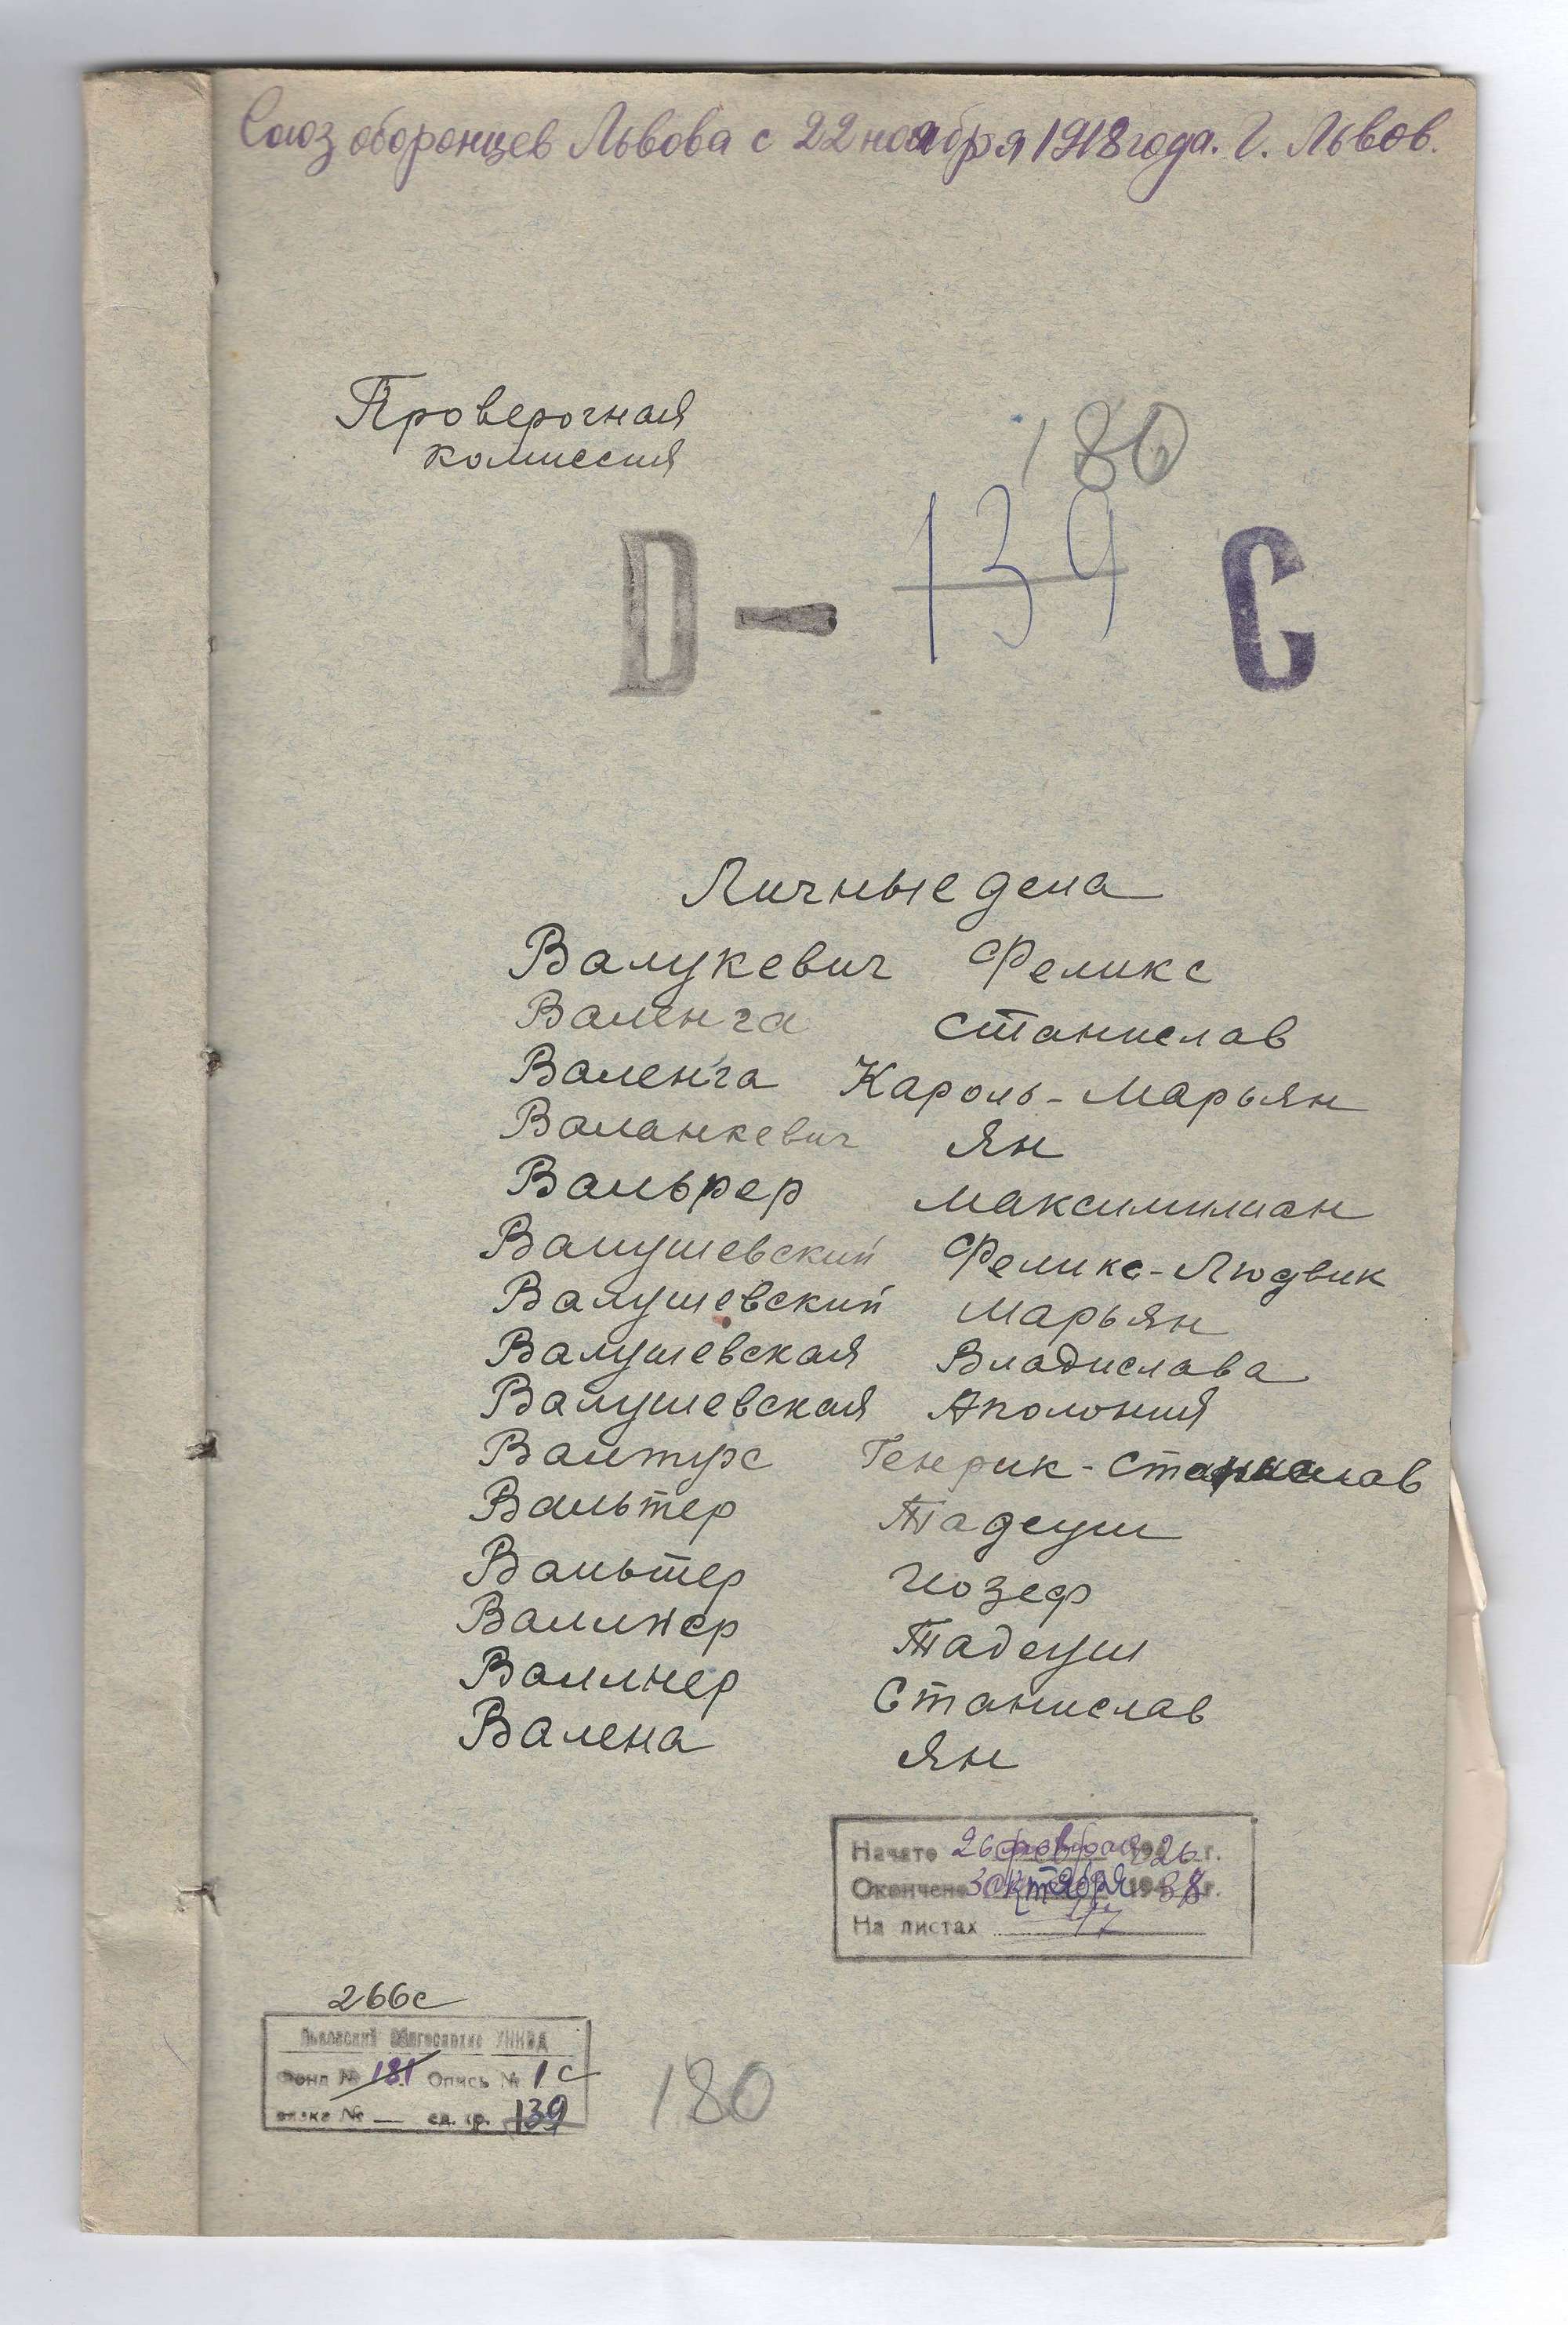 Союз оборонцев Львова с 22 ноября 1918 года. Г. Львов.
Проверочная
комиссия
180
139
D — С
Личные дела
Валукевич Феликс
Валенга Станислав
Валенга Кароль-Марьян
Валанкевич Ян
Максимилиан
Валушевский Феликс-Людвик
Валушевский Марьян
Валушевская Владислава
Валушевская Аполония
Валтурс Генрик-Станислав
Вальтер Тадеуш
Вальтер Иозеф
Валлнер Тадеуш
Валлнер Станислав
Валена Ян
Начато 26 февраля 1926 г.
Окончено 3 октября 1938 г.
На листах
266с
Львовский Облгосархив УНКВД
Фонд № 181 Опись № 1с
вязка № — ед. хр. 139
180